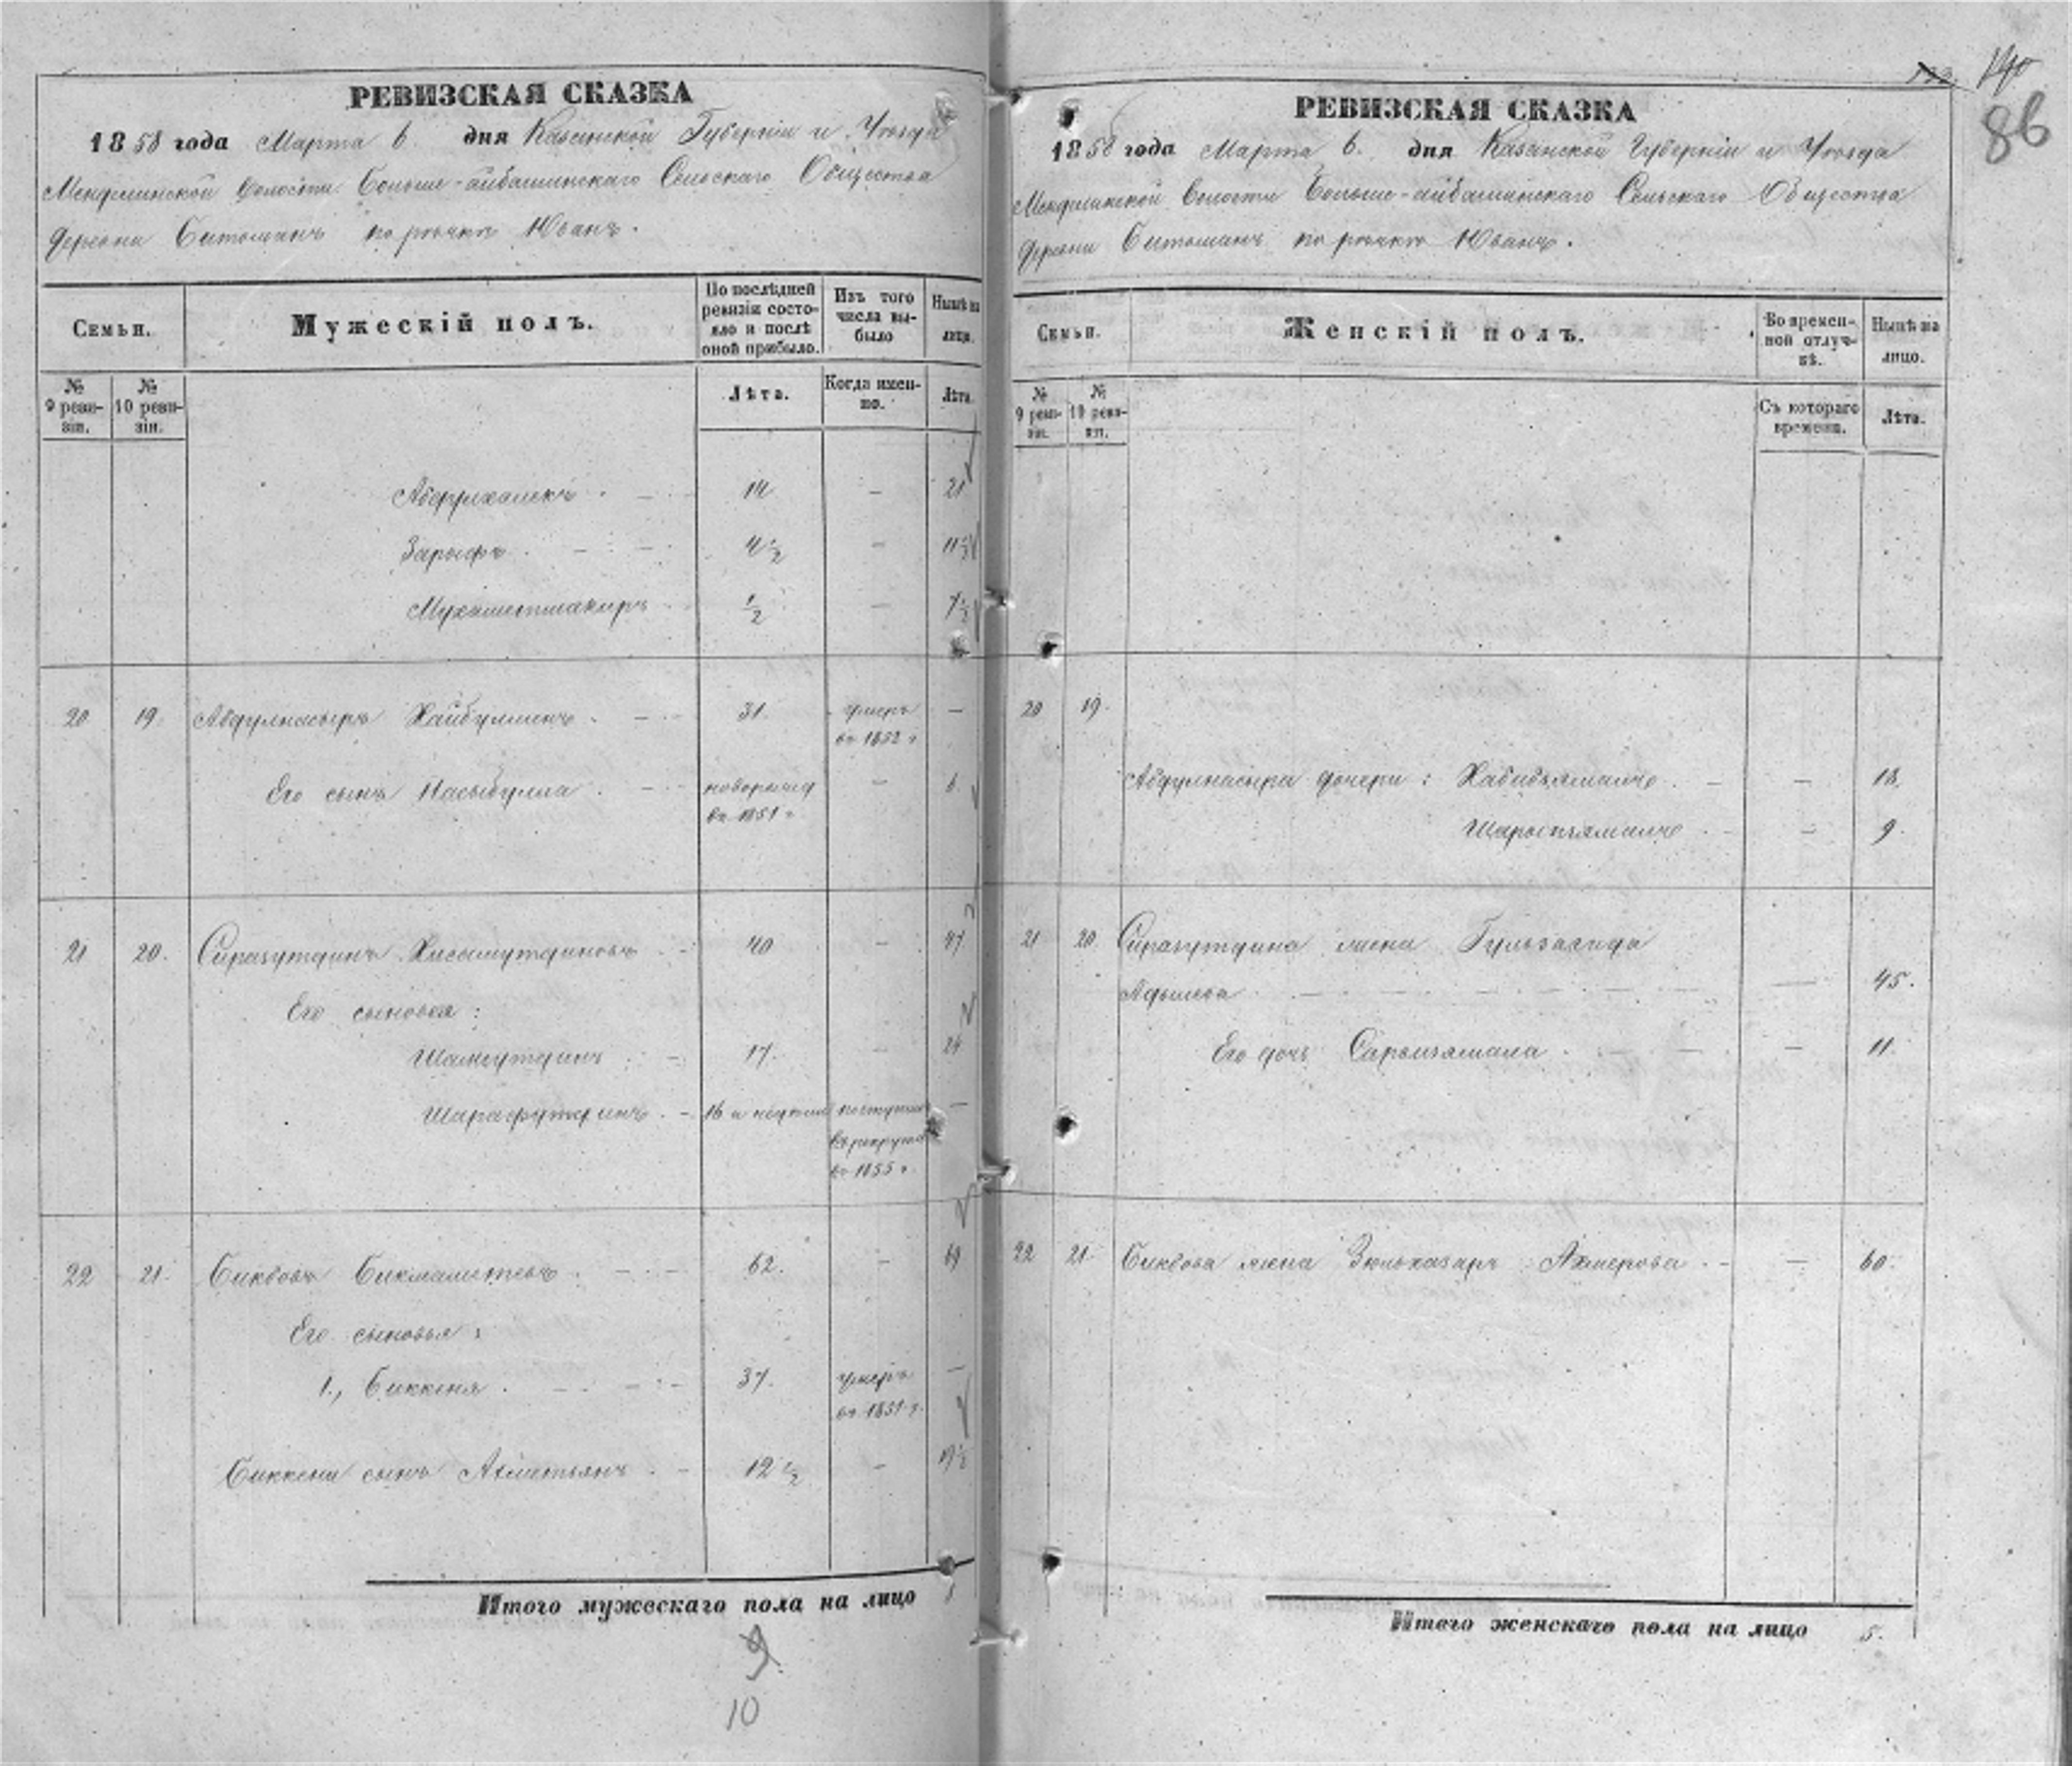 РЕВИЗСКАЯ СКАЗКА
1858 года Марта 6 дня Казанской Губернии и Уѣзда
Волости Больше-айбашинскаго Сельскаго Общества
деревни Битаманъ по рѣчкѣ Юванъ.
Семьи.
Мужескій полъ.
По послѣдней ревизіи состояло и послѣ оной прибыло.
Изъ того числа выбыло
Нынѣ на лицо.
№ 9 ревизіи.
№ 10 ревизіи.
Лѣта.
Когда именно.
Лѣта.
14 — 21
Зарыфъ 4½ — 11½
Мухаметшакиръ ½ — 7½
20 19. Абдулнасыръ Хайбуллинъ 31. умеръ —
въ 1852 г
Его сынъ Насыбулла — 6
въ 1851 г
21 20. Сиразутдинъ Хисамутдиновъ 40 — 47
Его сыновья:
Шамсутдинъ 17. — 24
Шарафутдинъ 16 и поступилъ —
въ рекруты
въ 1855 г.
22 21. Бикбовъ Бикмаметевъ 62. — 69
Его сыновья:
1., Биккеня 37. умеръ —
въ 1851 г.
Биккени сынъ Ахметьянъ 12½ — 19½
Итого мужескаго пола на лицо
9.
10
140
86
РЕВИЗСКАЯ СКАЗКА
1858 года Марта 6. дня Казанской Губерніи и Уѣзда
Волости Больше-айбашинскаго Сельскаго Общества
деревни Битаманъ по рѣчкѣ Юванъ.
Семьи.
Женскій полъ.
Во временной отлучкѣ.
Нынѣ на лицо.
№ 9 ревизіи.
№ 10 ревизіи.
Съ котораго времени.
Лѣта.
20 19.
Абдулнасыра дочери: Хабибзямалъ — —
— 9.
21 20. Сиразутдина жена
— 45.
Его дочь — 11.
22 21. Бикбова жена Ахмерова — 60.
Итого женскаго пола на лицо 5.